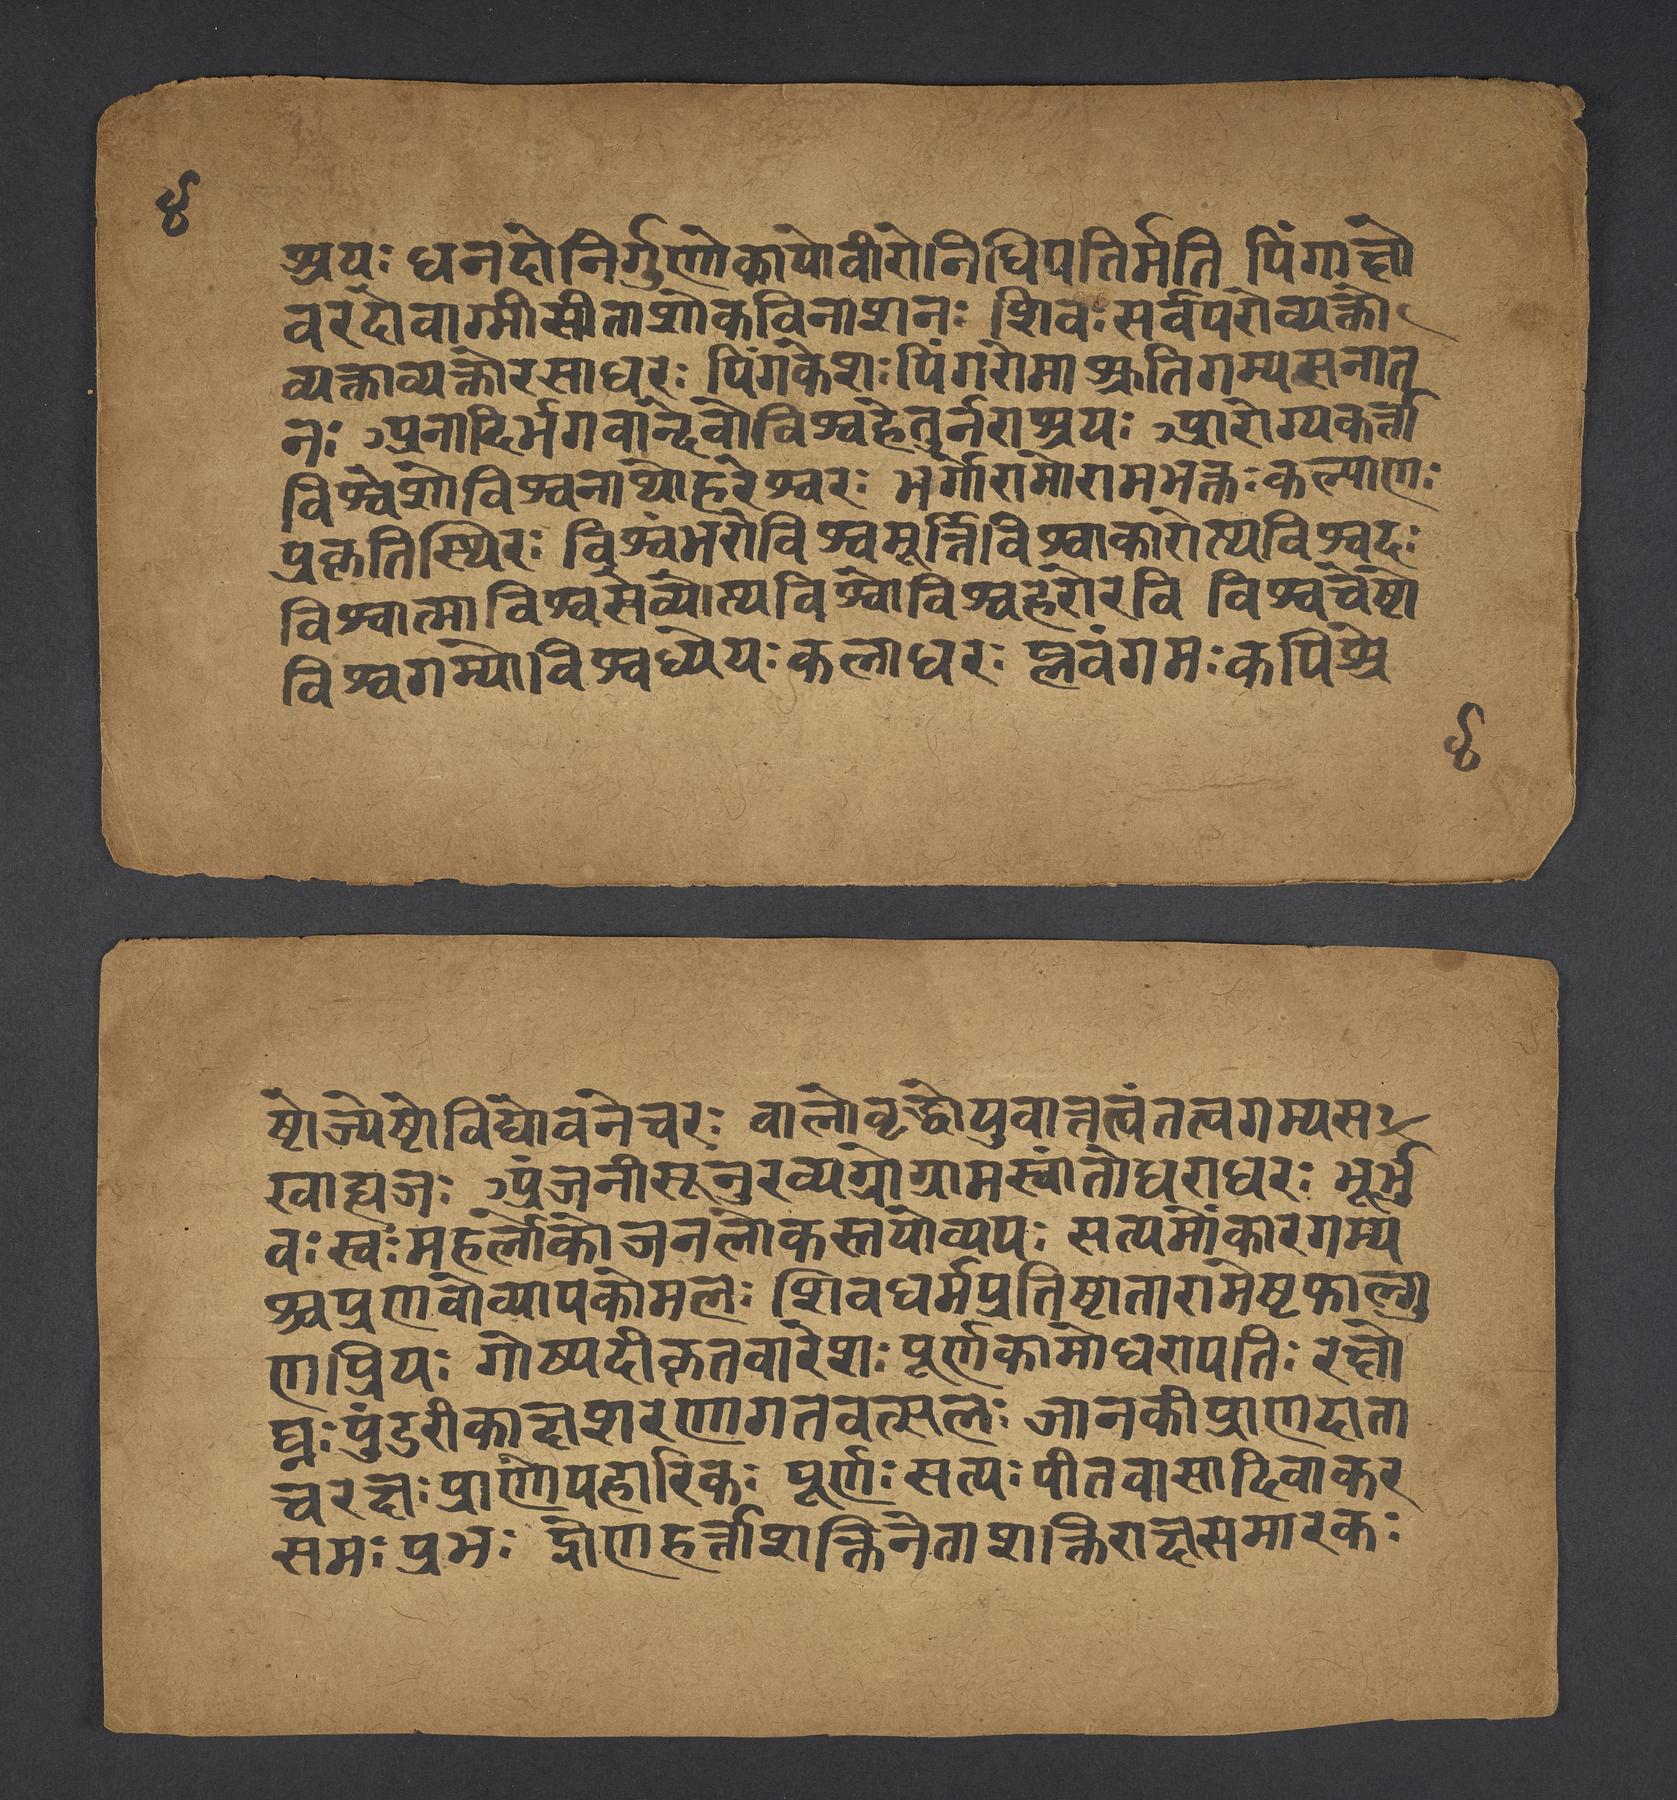 ४
श्रयः धनदोनिर्गुणोकायोवीरोनिधिपतिर्मति पिंगाक्षो
वरदोवाग्मीसीताशोकविनाशनः शिवःसर्वपरोव्यक्तो
व्यक्ताव्यक्तोरसाधरः पिंगकेशःपिंगरोमा श्रुतिगम्यसनात
नः अनादिर्भगवान्देवोविश्वहेतुर्नराश्रयः आरोग्यकर्त्ता
विश्वेशोविश्वनाथोहरेश्वरः भर्गोरामोरामभक्तःकल्याणः
प्रकृतिस्थिरः विश्वंभरोविश्वमूर्त्तिविश्वाकारोत्यविश्वदः
विश्वात्माविश्वसेव्योत्यविश्वोविश्वहरोरवि विश्वचेष्टो
विश्वगम्योविश्वध्येयःकलाधरः प्लवंगमःकपिश्रे
४
ष्टोज्येष्टोविद्योवनेचरः वालोवृद्धोयुवातत्त्वंतत्वगम्यस
खाह्यजः अंजनीसूनुरव्यग्रोग्रामस्वांतोधराधरः भूर्भु
वःस्वःमहर्लोकोजनलोकस्तयोव्ययः सत्यमोंकारगम्य
श्वप्रणवोव्यापकोमलः शिवधर्मप्रतिष्टातारामेष्टफाल्गु
णप्रियः गोष्पदीकृतवारेशःपूर्णकामोधरापतिः रक्षो
घ्नःपुंडरीकाक्षशरणागतवत्सलः जानकीप्राणदाता
चरक्षःप्राणोपहारिकः पूर्णःसत्यःपीतवासादिवाकर
समःप्रभः द्रोणहर्त्ताशक्तिनेताशक्तिराक्षसमारकः